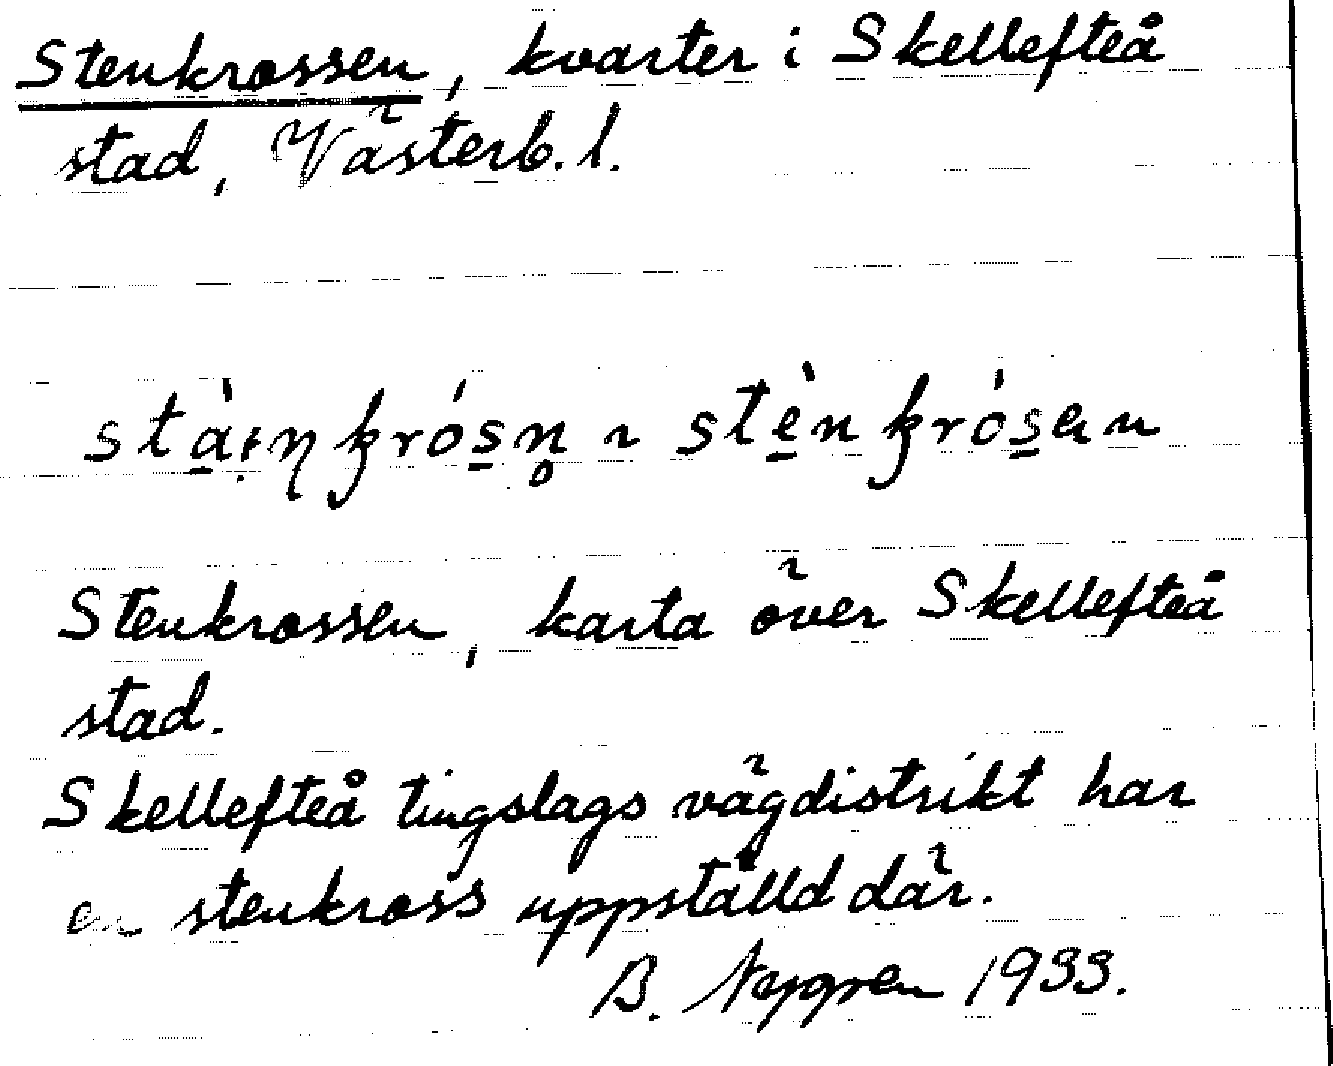 Stenkrossen, kvarter i Skellefteå
stad, Västerb. l.
stàiŋkrósn̥ ~ stènkrósen
Stenkrossen, karta över Skellefteå
stad.
Skellefteå tingslags vägdistrikt har
en stenkross uppställd där.
B. Nygren 1933.